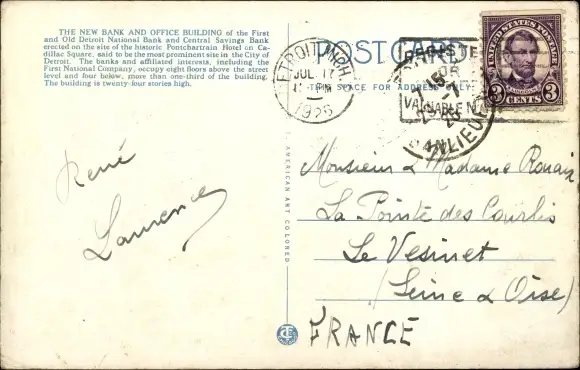 THE NEW BANK AND OFFICE BUILDING of the First
and Old Detroit National Bank and Central Savings Bank
erected on the site of the historic Pontchartrain Hotel on Ca-
dillac Square, said to be the most prominent site in the City of
Detroit. The banks and affiliated interests, including the
First National Company, occupy eight floors above the street
level and four below, more than one-third of the building.
The building is twenty-four stories high.
POST CARD
THIS SPACE FOR ADDRESS ONLY
DETROIT, MICH.
JUL 17
PM
1926
REGISTER
OR
VALUABLE
UNITED STATES POSTAGE
LINCOLN
3 CENTS 3
René
Laurence
AMERICAN ART COLORED
Monsieur & Madame Romain
La Pointe des Courlis
Le Vesinet
(Seine & Oise)
FRANCE